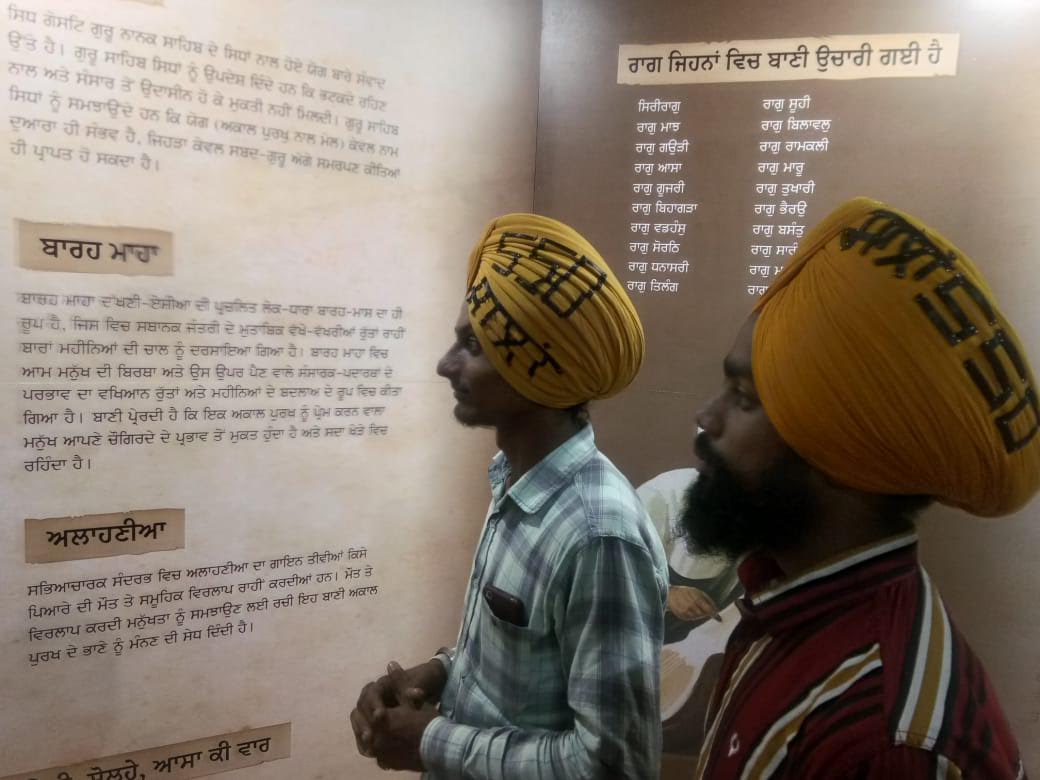 ਸਿਧ ਗੋਸਟਿ ਗੁਰੂ ਨਾਨਕ ਸਾਹਿਬ ਦੇ ਸਿਧਾਂ ਨਾਲ ਹੋਏ ਯੋਗ ਬਾਰੇ ਸੰਵਾਦ
ਉੱਤੇ ਹੈ। ਗੁਰੂ ਸਾਹਿਬ ਸਿਧਾਂ ਨੂੰ ਉਪਦੇਸ਼ ਦਿੰਦੇ ਹਨ ਕਿ ਭਟਕਦੇ ਰਹਿਣ
ਨਾਲ ਅਤੇ ਸੰਸਾਰ ਤੋਂ ਉਦਾਸੀਨ ਹੋ ਕੇ ਮੁਕਤੀ ਨਹੀਂ ਮਿਲਦੀ। ਗੁਰੂ ਸਾਹਿਬ
ਸਿਧਾਂ ਨੂੰ ਸਮਝਾਉਂਦੇ ਹਨ ਕਿ ਯੋਗ (ਅਕਾਲ ਪੁਰਖੁ ਨਾਲ ਮੇਲ) ਕੇਵਲ ਨਾਮ
ਦੁਆਰਾ ਹੀ ਸੰਭਵ ਹੈ, ਜਿਹੜਾ ਕੇਵਲ ਸਬਦ-ਗੁਰੂ ਅੱਗੇ ਸਮਰਪਣ ਕੀਤਿਆਂ
ਹੀ ਪ੍ਰਾਪਤ ਹੋ ਸਕਦਾ ਹੈ।
ਬਾਰਹ ਮਾਹਾ
ਬਾਰਹ ਮਾਹਾ ਦੱਖਣੀ-ਏਸ਼ੀਆ ਦੀ ਪ੍ਰਚਲਿਤ ਲੋਕ-ਧਾਰਾ ਬਾਰਹ-ਮਾਸ ਦਾ ਹੀ
ਰੂਪ ਹੈ, ਜਿਸ ਵਿਚ ਸਥਾਨਕ ਜੰਤਰੀ ਦੇ ਮੁਤਾਬਿਕ ਵੱਖੋ-ਵੱਖਰੀਆਂ ਰੁੱਤਾਂ ਰਾਹੀਂ
ਬਾਰਾਂ ਮਹੀਨਿਆਂ ਦੀ ਚਾਲ ਨੂੰ ਦਰਸਾਇਆ ਗਿਆ ਹੈ। ਬਾਰਹ ਮਾਹਾ ਵਿਚ
ਆਮ ਮਨੁੱਖ ਦੀ ਬਿਰਥਾ ਅਤੇ ਉਸ ਉਪਰ ਪੈਣ ਵਾਲੇ ਸੰਸਾਰਕ-ਪਦਾਰਥਾਂ ਦੇ
ਪਰਭਾਵ ਦਾ ਵਖਿਆਨ ਰੁੱਤਾਂ ਅਤੇ ਮਹੀਨਿਆਂ ਦੇ ਬਦਲਾਅ ਦੇ ਰੂਪ ਵਿਚ ਕੀਤਾ
ਗਿਆ ਹੈ। ਬਾਣੀ ਪ੍ਰੇਰਦੀ ਹੈ ਕਿ ਇਕ ਅਕਾਲ ਪੁਰਖ ਨੂੰ ਪ੍ਰੇਮ ਕਰਨ ਵਾਲਾ
ਮਨੁੱਖ ਆਪਣੇ ਚੌਗਿਰਦੇ ਦੇ ਪ੍ਰਭਾਵ ਤੋਂ ਮੁਕਤ ਹੁੰਦਾ ਹੈ ਅਤੇ ਸਦਾ ਖੇੜੇ ਵਿਚ
ਰਹਿੰਦਾ ਹੈ।
ਅਲਾਹਣੀਆ
ਸਭਿਆਚਾਰਕ ਸੰਦਰਭ ਵਿਚ ਅਲਾਹਣੀਆ ਦਾ ਗਾਇਨ ਤੀਵੀਂਆਂ ਕਿਸੇ
ਪਿਆਰੇ ਦੀ ਮੌਤ ਤੇ ਸਮੂਹਿਕ ਵਿਰਲਾਪ ਰਾਹੀਂ ਕਰਦੀਆਂ ਹਨ। ਮੌਤ ਤੇ
ਵਿਰਲਾਪ ਕਰਦੀ ਮਨੁੱਖਤਾ ਨੂੰ ਸਮਝਾਉਣ ਲਈ ਰਚੀ ਇਹ ਬਾਣੀ ਅਕਾਲ
ਪੁਰਖ ਦੇ ਭਾਣੇ ਨੂੰ ਮੰਨਣ ਦੀ ਸੇਧ ਦਿੰਦੀ ਹੈ।
ਸੋਲਹੇ, ਆਸਾ ਕੀ ਵਾਰ
ਰਾਗ ਜਿਹਨਾਂ ਵਿਚ ਬਾਣੀ ਉਚਾਰੀ ਗਈ ਹੈ
ਸਿਰੀਰਾਗੁ
ਰਾਗੁ ਮਾਝ
ਰਾਗੁ ਗਉੜੀ
ਰਾਗੁ ਆਸਾ
ਰਾਗੁ ਗੂਜਰੀ
ਰਾਗੁ ਬਿਹਾਗੜਾ
ਰਾਗੁ ਵਡਹੰਸੁ
ਰਾਗੁ ਸੋਰਠਿ
ਰਾਗੁ ਧਨਾਸਰੀ
ਰਾਗੁ ਤਿਲੰਗ
ਰਾਗੁ ਸੂਹੀ
ਰਾਗੁ ਬਿਲਾਵਲੁ
ਰਾਗੁ ਰਾਮਕਲੀ
ਰਾਗੁ ਮਾਰੂ
ਰਾਗੁ ਤੁਖਾਰੀ
ਰਾਗੁ ਭੈਰਉ
ਰਾਗੁ ਬਸੰਤੁ
ਰਾਗੁ
ਰਾਗੁ
550
ਸਾਲਾਂ
ਸਾਲਾਂ
550